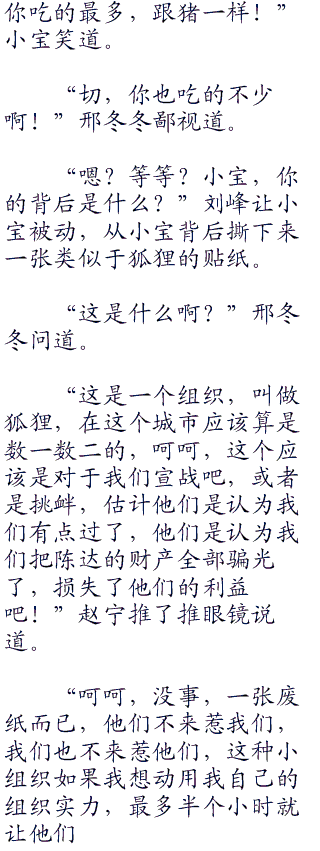 你吃的最多，跟猪一样！”
小宝笑道。
“切，你也吃的不少
啊！”邢冬冬鄙视道。
“嗯？等等？小宝，你
的背后是什么？”刘峰让小
宝被动，从小宝背后撕下来
一张类似于狐狸的贴纸。
“这是什么啊？”邢冬
冬问道。
“这是一个组织，叫做
狐狸，在这个城市应该算是
数一数二的，呵呵，这个应
该是对于我们宣战吧，或者
是挑衅，估计他们是认为我
们有点过了，他们是认为我
们把陈达的财产全部骗光
了，损失了他们的利益
吧！”赵宁推了推眼镜说
道。
“呵呵，没事，一张废
纸而已，他们不来惹我们，
我们也不来惹他们，这种小
组织如果我想动用我自己的
组织实力，最多半个小时就
让他们